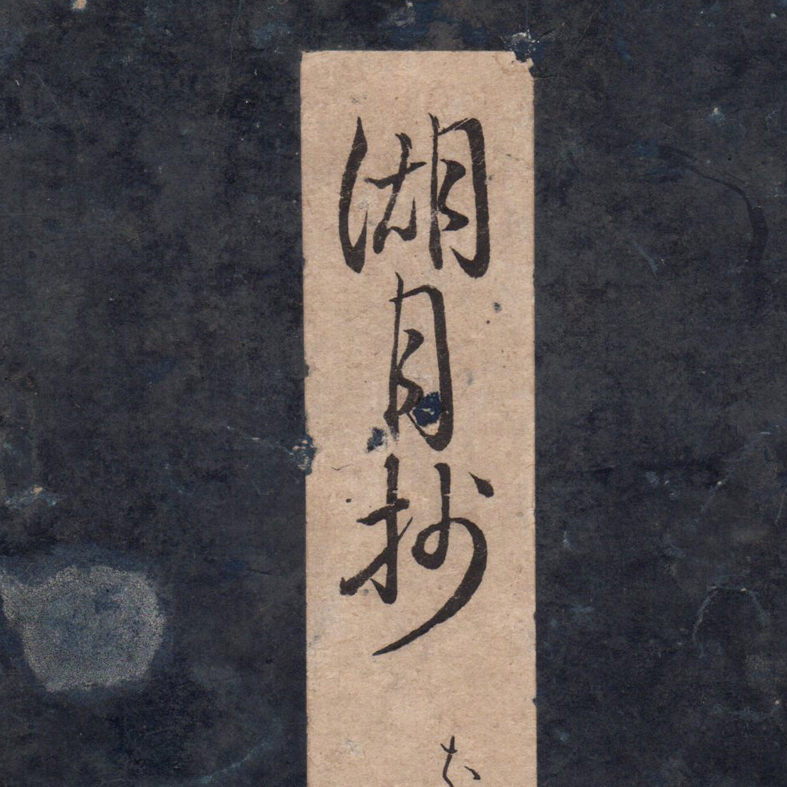 湖月抄